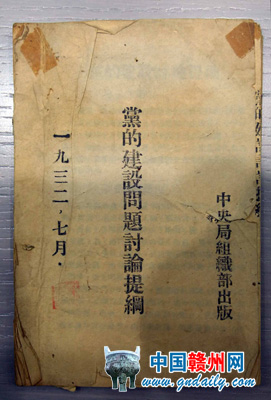 中央局組織部出版
黨的建設問題討論提綱
一九三二，七月．
中国赣州网
www.gndaily.com